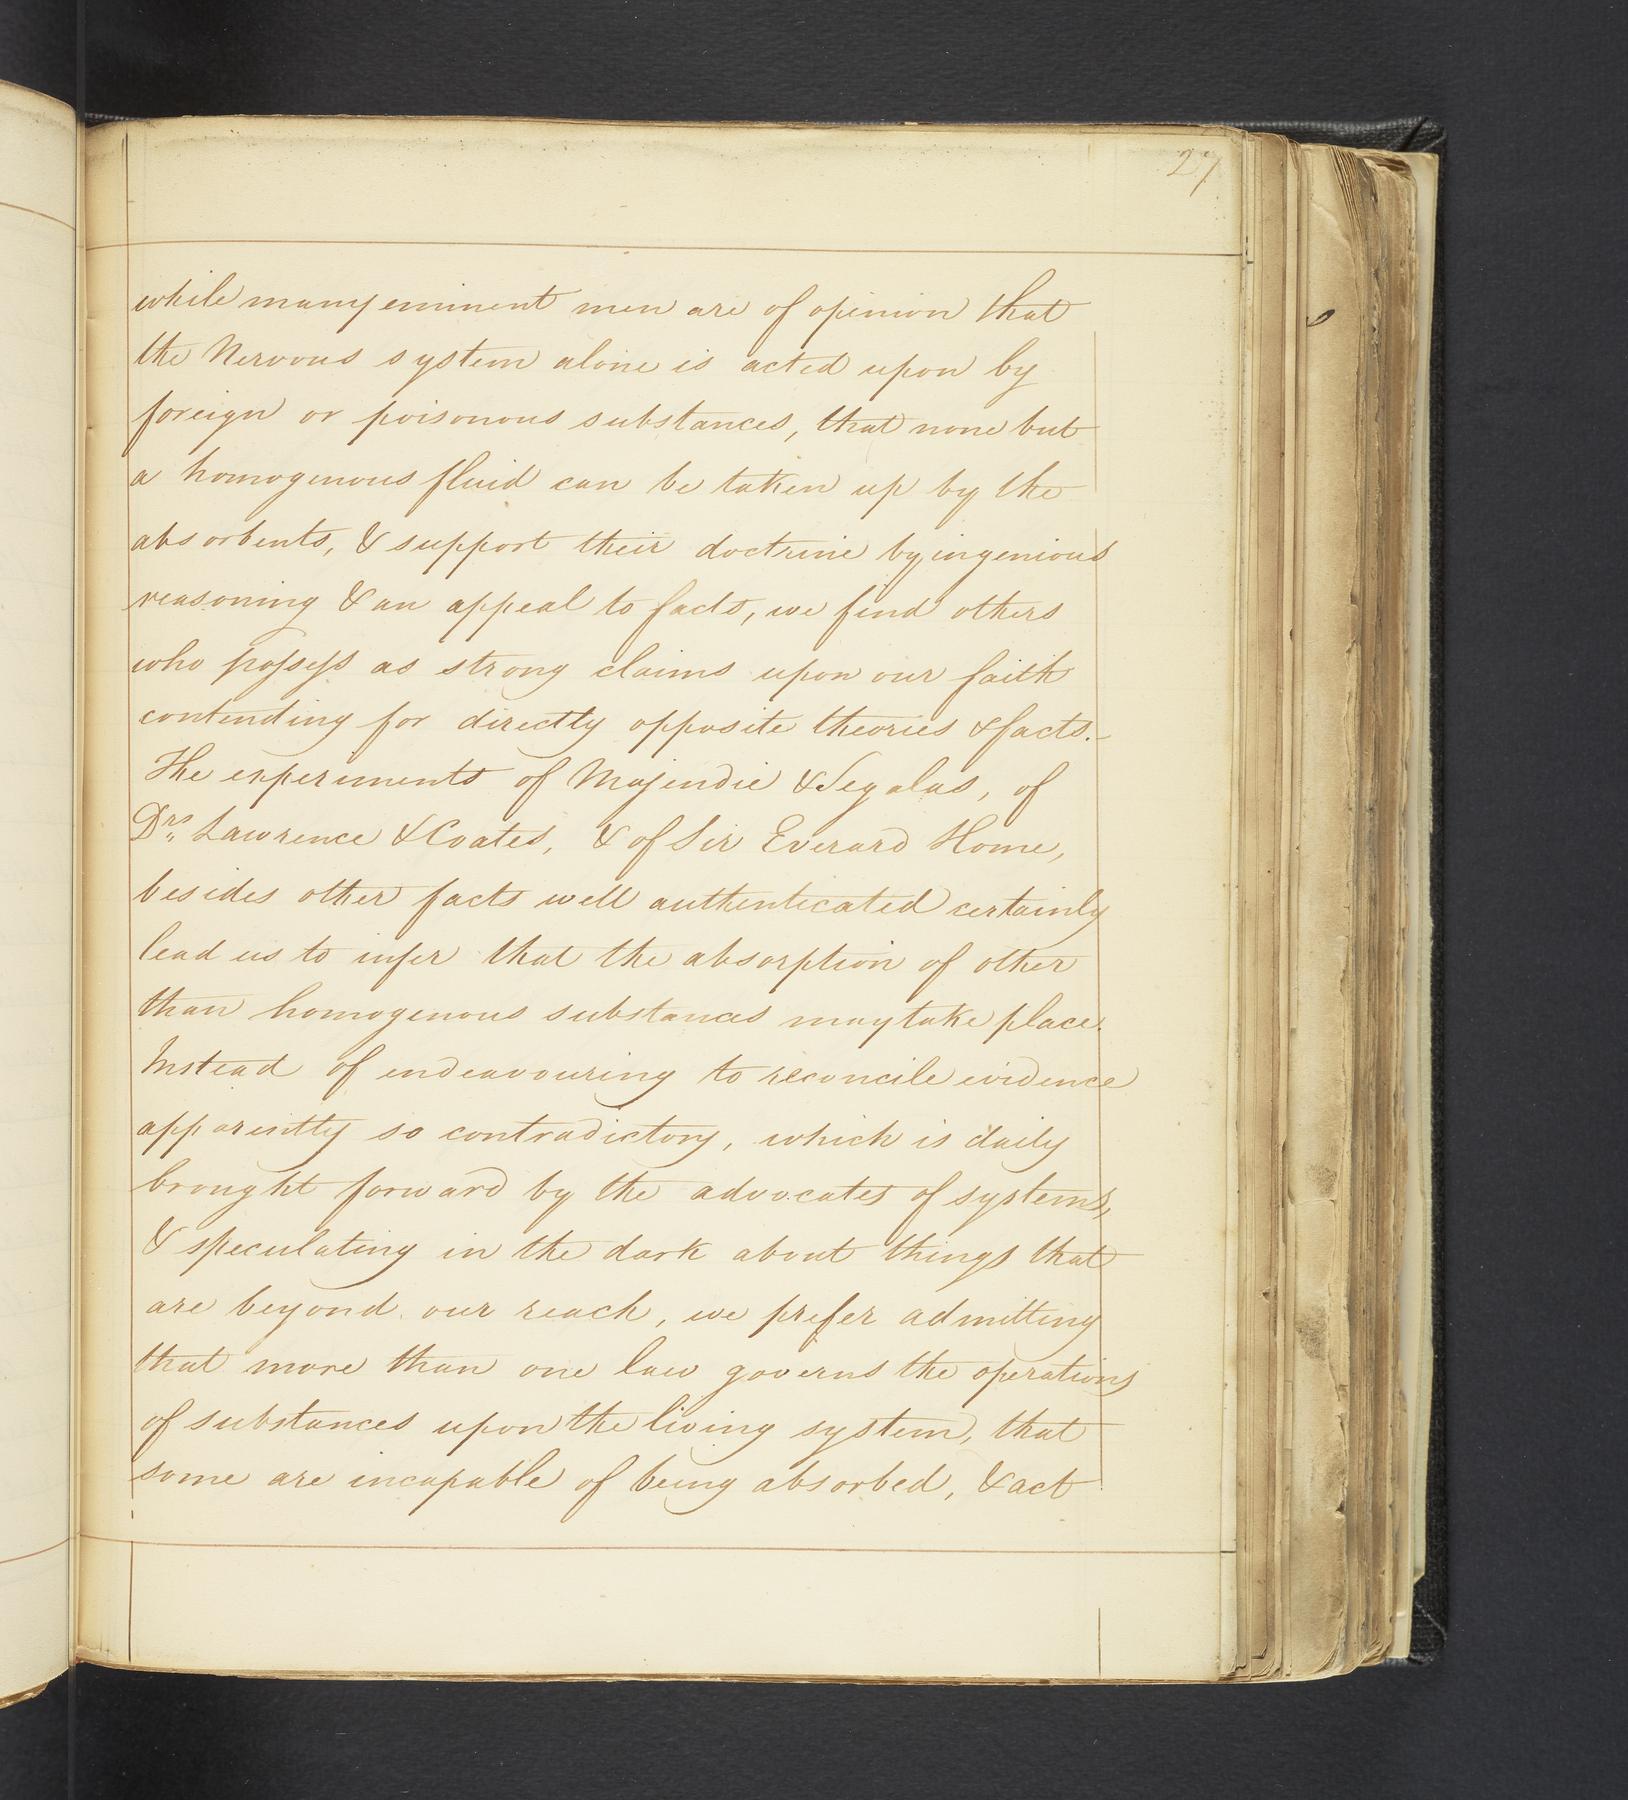 27
while many eminent men are of opinion that
the Nervous system alone is acted upon by
foreign or poisonous substances, that none but
a homogenous fluid can be taken up by the
absorbents, & support their doctrine by ingenious
reasoning & an appeal to facts, we find others
who possess as strong claims upon our faith
contending for directly opposite theories & facts.-
The experiments of Majendie & Segalas, of
Drs. Lawrence & Coates, & of Sir Everard Home,
besides other facts well authenticated certainly
lead us to infer that the absorption of other
than homogenous substances may take place.
Instead of endeavouring to reconcile evidence
apparently so contradictory, which is daily
brought forward by the advocates of systems,
& speculating in the dark about things that
are beyond our reach, we prefer admitting
that more than one law governs the operations
of substances upon the living system, that
some are incapable of being absorbed, & act